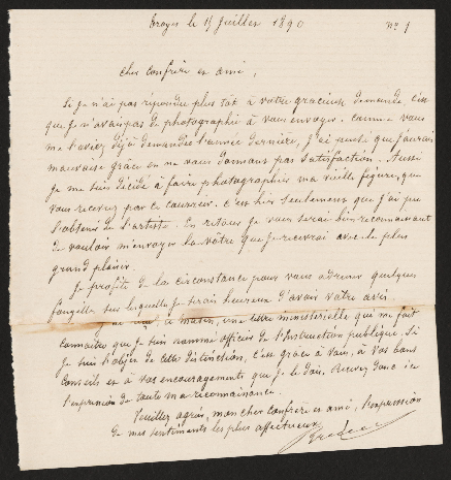 Troyes le 15 Juillet 1890 no 1
Cher confrère et ami,
Si je n'ai pas répondu plus tôt à votre gracieuse demande, c'est
que je n'avais pas de photographie à vous envoyer. Comme vous
me l'aviez déjà demandée l'année dernière, j'ai pensé que j'aurais
mauvaise grâce en ne vous donnant pas satisfaction. Aussi
je me suis décidé à faire photographier ma vieille figure, que
vous recevrez par ce courrier. C'est hier seulement que j'ai pu
l'obtenir de l'artiste. En retour je vous serai bien reconnaissant
de vouloir m'envoyer la vôtre que je recevrai avec le plus
grand plaisir.
Je profite de la circonstance pour vous adresser quelques
fossiles sur lesquelles je serais heureux d'avoir votre avis.
ce matin, une lettre ministérielle qui me fait
connaître que je suis nommé officier de l'Instruction publique. Si
je suis l'objet de cette distinction, c'est grâce à vous, à vos bons
conseils et à vos encouragements que je le dois. Recevez donc ici
l'expression de toute ma reconnaissance.
Veuillez agréer, mon cher confrère et ami, l'expression
de mes sentiments les plus affectueux.